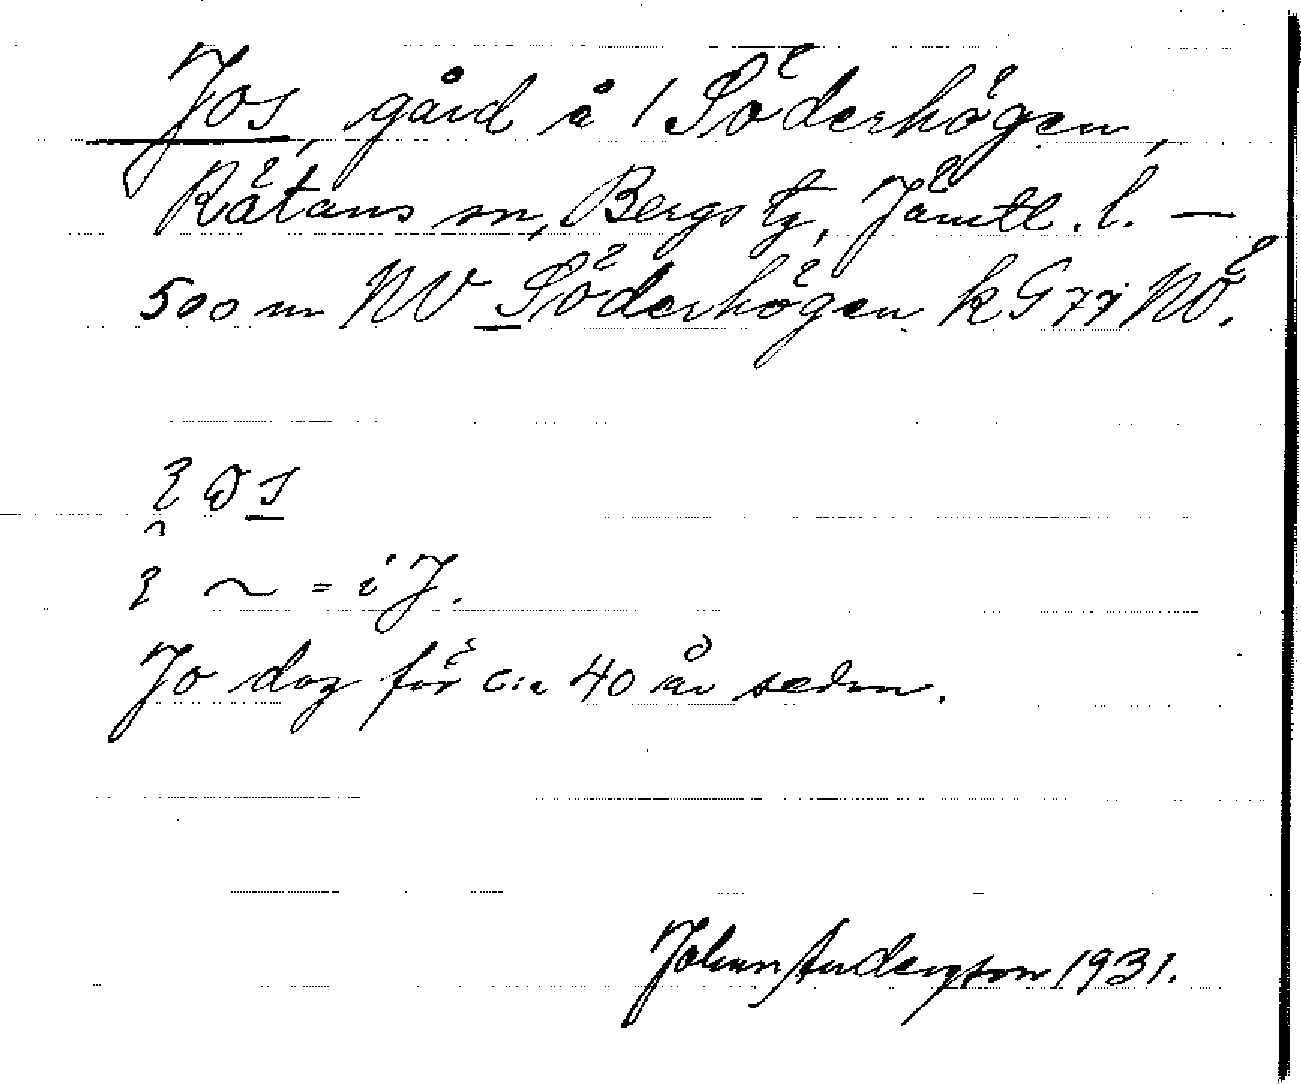 Jos, gård å 1 Söderhögen,
Rätans sn, Bergs tg, Jämtl. l. —
500 m NV Söderhögen k G 77 NÖ.
~ = i J.
Jo dog för c:a 40 år sedan.
Johan Anderson 1931.